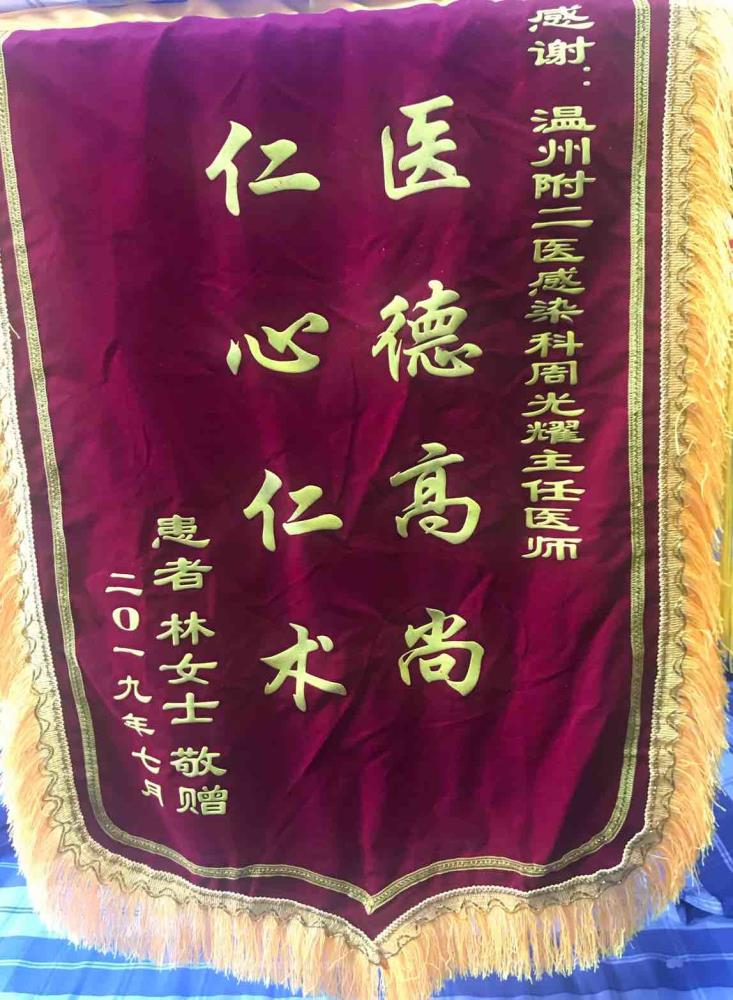 感谢：温州附二医感染科周光耀主任医师
医德高尚
仁心仁术
患者 林女士 敬赠
二〇一九年七月